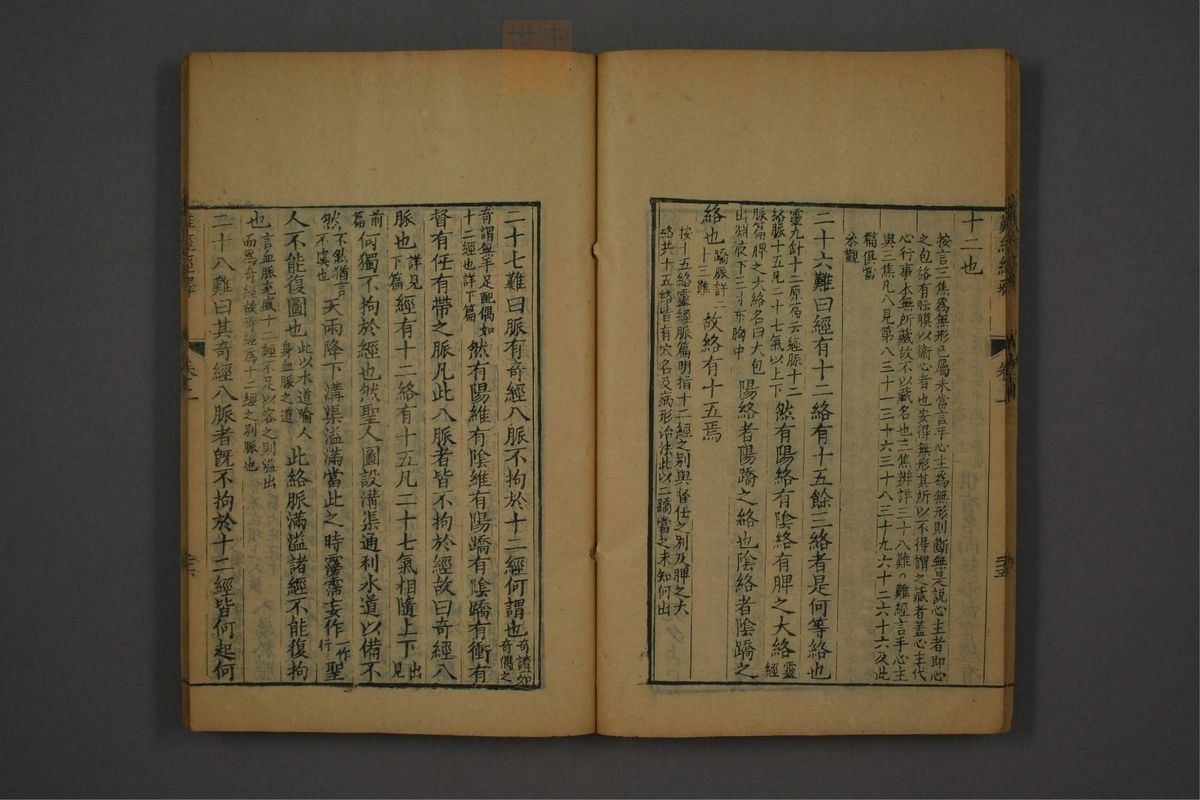 十二也
按言三焦爲無形已屬未當言手心主爲無形則斷無是説心主者即心
之包絡有脂膜以衛心者也安得無形其所以不得謂之藏者蓋心主代
心行事本無所藏故不以藏名也三焦辨詳三十八難 難經言手心主
與三焦凡八見第八三十一三十六三十八三十九六十二六十六及此
篇俱當
參觀
二十六難曰經有十二絡有十五餘三絡者是何等絡也
靈九針十二原篇云經脈十二
絡脈十五凡二十七氣以上下
然有陽絡有陰絡有脾之大絡
靈
經
脈篇脾之大絡名曰大包
出淵液下三寸布胸中
陽絡者陽蹻之絡也陰絡者陰蹻之
絡也
蹻脈詳二
十三難
故絡有十五焉
按十五絡靈經脈篇明指十二經之别與督任之别及脾之大
絡共十五絡皆有穴名及病形治法此以二蹻當之未知何出
二十七難曰脈有奇經八脈不拘於十二經何謂也
奇讀如
奇偶之
奇謂無手足配偶如
十二經也詳下篇
然有陽維有陰維有陽蹻有陰蹻有衝有
督有任有帶之脈凡此八脈者皆不拘於經故曰奇經八
脈也
詳見
下篇
經有十二絡有十五凡二十七氣相隨上下
出
見
前
篇
何獨不拘於經也然聖人圖設溝渠通利水道以備不
然
不然猶言
不虞也
天雨降下溝渠溢滿當此之時霶霈妄作
一作
行
聖
人不能復圖也
此以水道喻人
身血脈之道
此絡脈滿溢諸經不能復拘
也
言血脈充盛十二經不足以容之則溢出
而爲奇經故奇經爲十二經之别脈也
二十八難曰其奇經八脈者旣不拘於十二經皆何起何
難經經釋
卷上